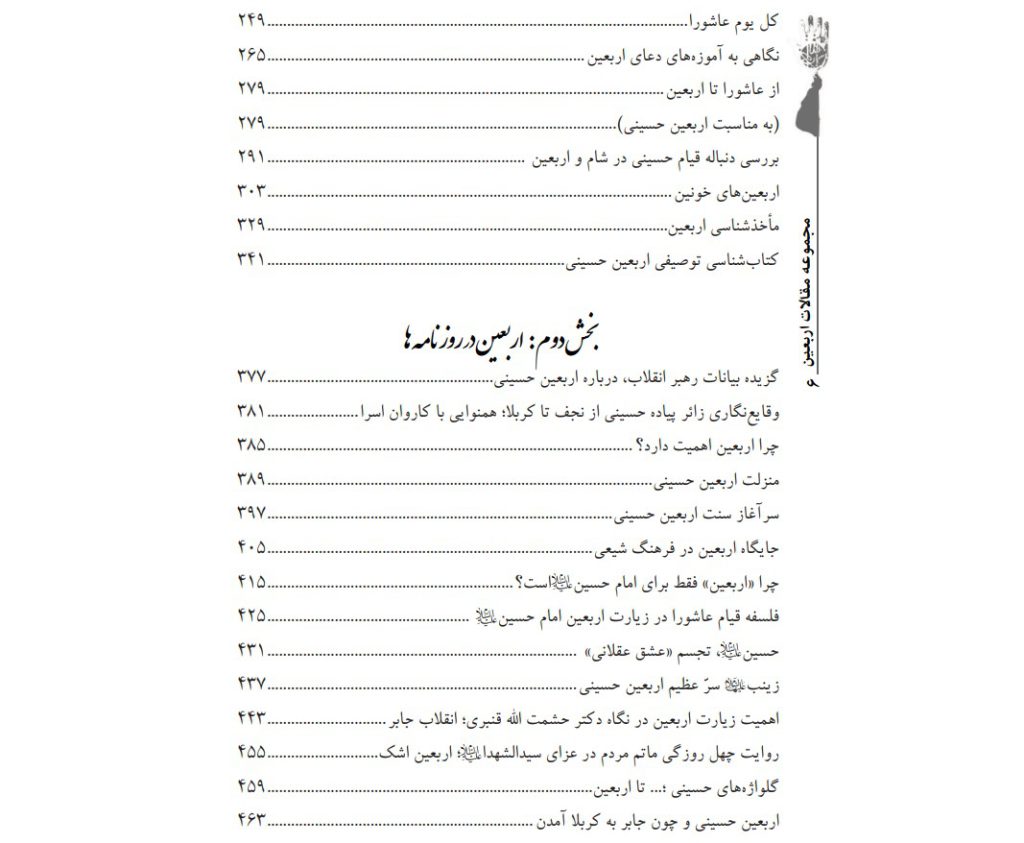 کل یوم عاشورا........................................۲۴۹
نگاهی به آموزه‌های دعای اربعین........................................۲۶۵
از عاشورا تا اربعین........................................۲۷۹
(به مناسبت اربعین حسینی)........................................۲۷۹
بررسی دنباله قیام حسینی در شام و اربعین ........................................۲۹۱
اربعین‌های خونین........................................۳۰۳
مأخذشناسی اربعین........................................۳۲۹
کتاب‌شناسی توصیفی اربعین حسینی........................................۳۴۱
بخش دوم: اربعین در روزنامه‌ها
گزیده بیانات رهبر انقلاب، درباره اربعین حسینی........................................۳۷۷
وقایع‌نگاری زائر پیاده حسینی از نجف تا کربلا؛ همنوایی با کاروان اسرا......................۳۸۱
چرا اربعین اهمیت دارد؟ ........................................۳۸۵
منزلت اربعین حسینی........................................۳۸۹
سرآغاز سنت اربعین حسینی........................................۳۹۷
جایگاه اربعین در فرهنگ شیعی........................................۴۰۵
چرا «اربعین» فقط برای امام حسین علیه‌السلام است؟........................................۴۱۵
فلسفه قیام عاشورا در زیارت اربعین امام حسین علیه‌السلام ........................................۴۲۵
حسین علیه‌السلام، تجسم «عشق عقلانی» ........................................۴۳۱
زینب علیهاالسلام سرّ عظیم اربعین حسینی........................................۴۳۷
اهمیت زیارت اربعین در نگاه دکتر حشمت الله قنبری؛ انقلاب جابر............................۴۴۳
روایت چهل روزگی ماتم مردم در عزای سیدالشهدا علیه‌السلام؛ اربعین اشک............................۴۵۵
گلواژه‌های حسینی ؛... تا اربعین........................................۴۵۹
اربعین حسینی و چون جابر به کربلا آمدن ........................................۴۶۳
مجموعه مقالات اربعین
۶